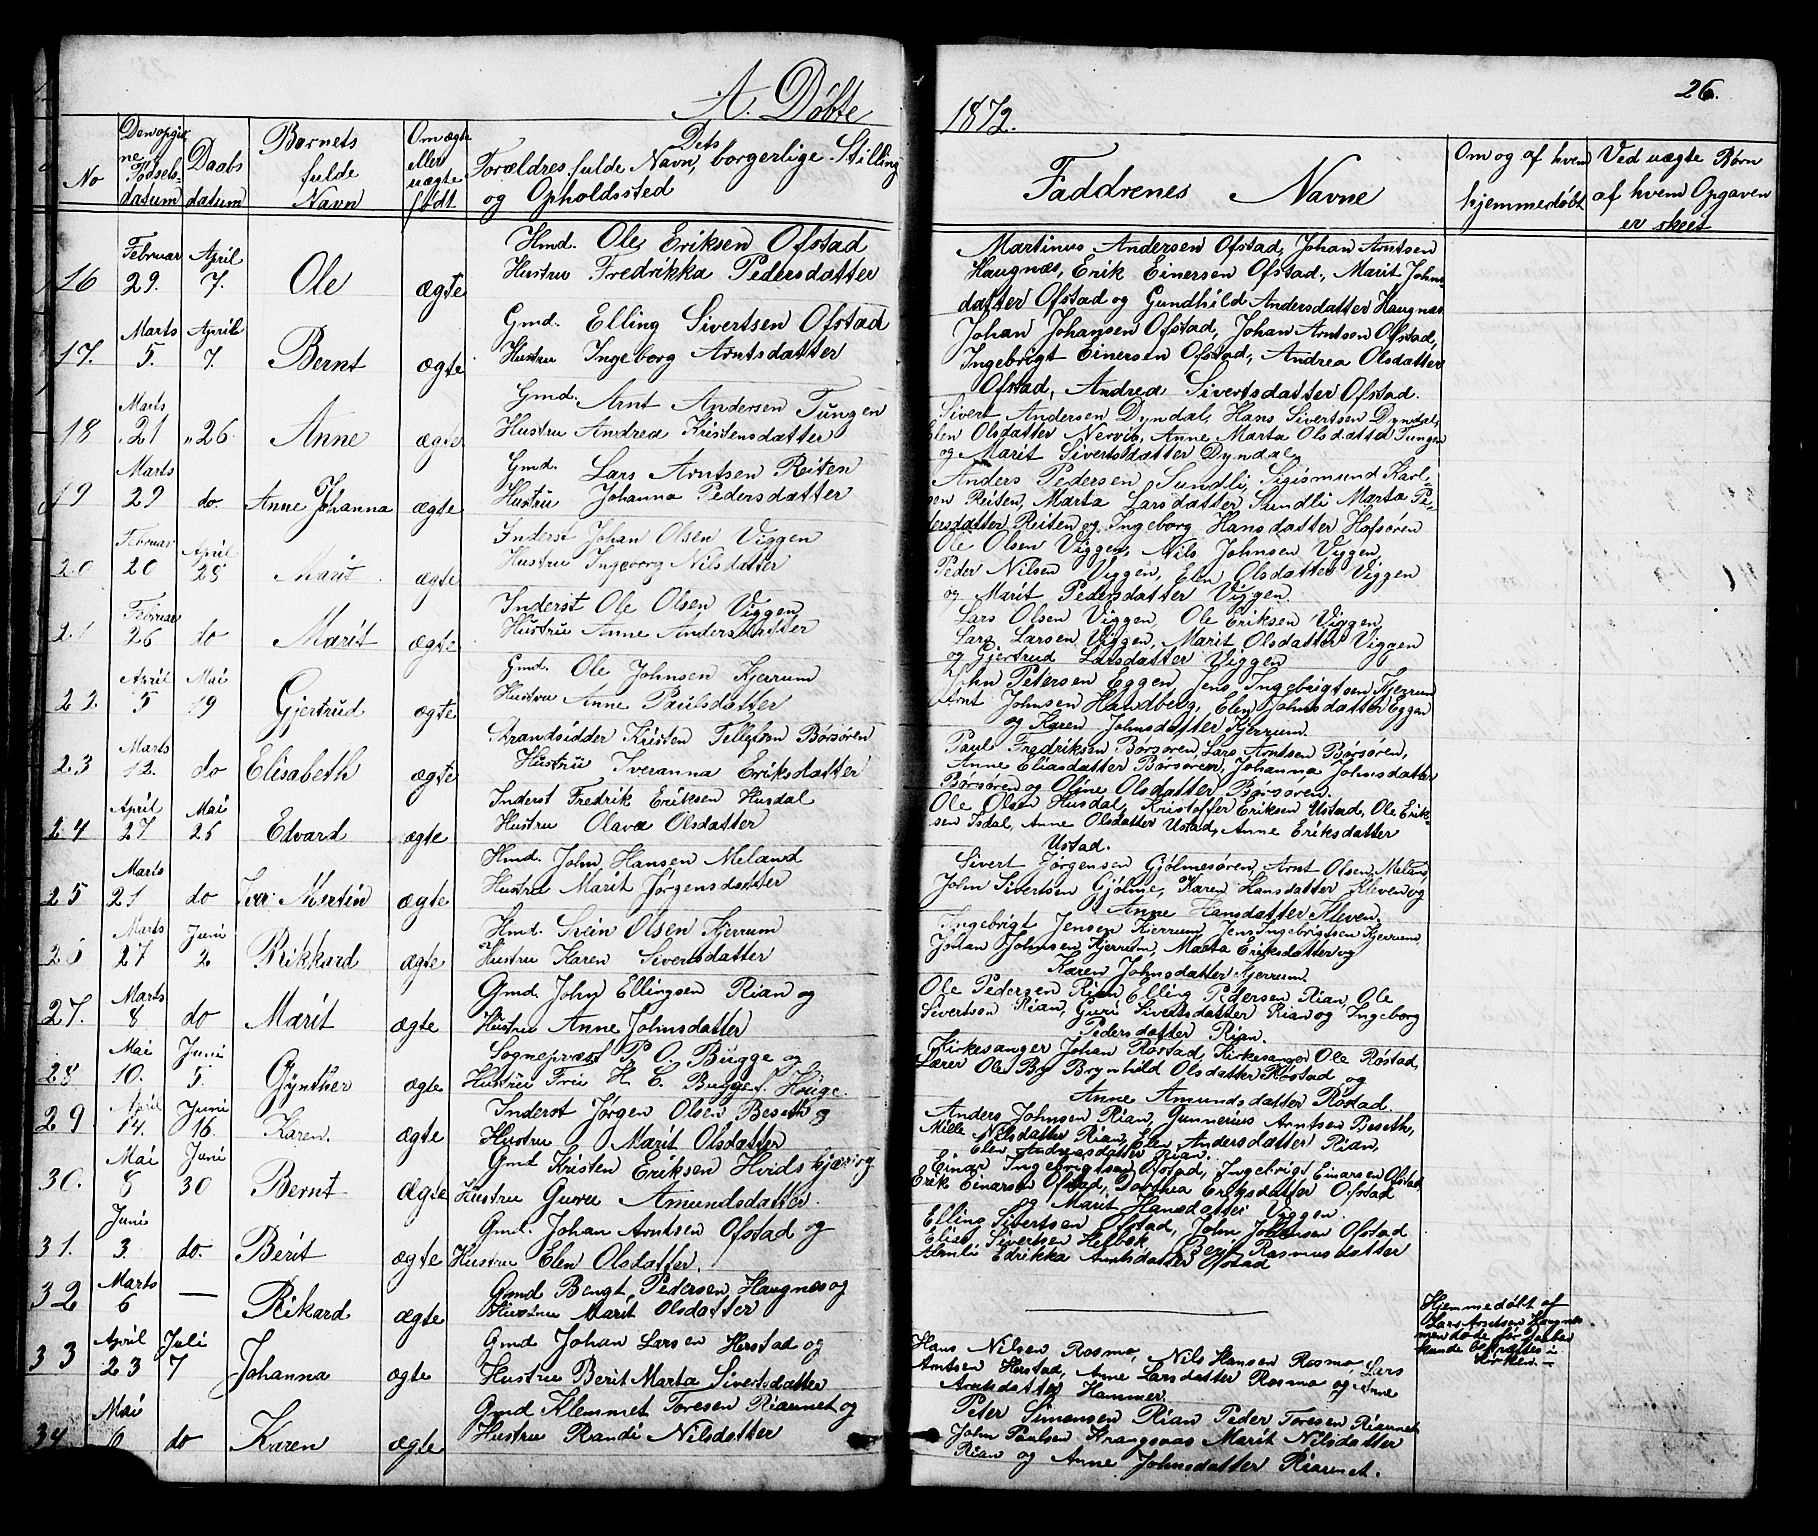 A. Döbte
1872.
26.
No
Den opgivne Födselsdatum
Daabsdatum
Barnets fulde Navn
Om ægte eller uægte födt.
Dets Forældres fulde Navn, borgerlige Stilling og Opholdssted
Faddrenes Navne
Om og af hvem hjemmedöbt
Ved uægte Börn af hvem Opgaven er skeet
16 Februar 29. April 7. Ole ægte
Hmd. Ole Eriksen Ofstad
Hustru Fredrikka Pedersdatter
Martinus Andersen Ofstad, Johan Arntsen
Haugnæs, Erik Einersen Ofstad, Marit Johns
datter Ofstad og Gundhild Andersdatter Haugnæs
17. Marts 5. April 7. Bernt ægte
Gmd. Elling Sivertsen Ofstad
Hustru Ingeborg Arntsdatter
Johan Johansen Ofstad, Johan Arntsen Ofstad,
Ingebrigt Einersen Ofstad, Andrea Olsdatter
Ofstad, Andrea Sivertsdatter Ofstad.
18 Marts 21 " 26. Anne ægte
Gmd. Arnt Andersen Tungen
Hustru Andrea Kristensdatter
Sivert Andersen Dyndal, Hans Sivertsen Dyndal,
Elen Olsdatter Nervik, Anne Marta Olsdatter Tungen
og Marit Sivertsdatter Dyndal
19 Marts 29 do. Anne Johanna ægte
Gmd. Lars Arntsen Reiten
Hustru Johanna Pedersdatter
Anders Pedersen Sundli, Sigismund Karl-
sen Reiten, Marta Larsdatter Sundli Marta Pe-
dersdatter Reiten og Ingeborg Hansdatter Hofsören
20 Februar 20 April 28 Marit ægte
Inderst Johan Olsen Viggen
Hustru Ingeborg Nilsdatter
Ole Olsen Viggen, Nils Johnsen Viggen,
Peder Nilsen Viggen, Elen Olsdatter Viggen
og Marit Pedersdatter Viggen
21 Februar 26 do Marit ægte
Inderst Ole Olsen Viggen
Hustru Anne Andersdatter
Lars Olsen Viggen, Ole Eriksen Viggen,
Lars Larsen Viggen, Marit Olsdatter Viggen
og Gjertrud Larsdatter Viggen
22. April 5 Mai 19 Gjertrud ægte
Gmd. Ole Johnsen Kjerrum
Hustru Anne Paulsdatter
John Petersen Eggen Jens Ingebrigtsen Kjerrum
Arnt Johnsen Handberg, Elen Johnsdatter Eggen
og Karen Johnsdatter Kjerrum.
23 Marts 12. do Elisabeth ægte
Strandsidder Kristen Tellefsen Börsören
Hustru Iveranna Eriksdatter
Paul Fredriksen Börsören, Lars Arntsen Börsören,
Anne Eliasdatter Börsören, Johanna Johnsdatter
Börsören og Oline Olsdatter Börsören.
24 April 27 Mai 25 Edvard ægte
Inderst Fredrik Eriksen Husdal
Hustru Olava Olsdatter
Ole Olsen Husdal, Kristoffer Eriksen Ustad, Ole Erik-
sen Isdal, Anne Olsdatter Ustad, Anne Eriksdatter
Ustad.
25 Marts 21 do Iver Martin ægte
Hmd. John Hansen Meland
Hustru Marit Jörgensdatter
Sivert Jörgensen Gjölmesören, Arnt Olsen Meland
John Sivertsen Gjölme, Karen Hansdatter Kleven og
Anne Hansdatter Kleven.
26 Marts 27 Juni 2 Rikkard ægte
Hmd. Svein Olsen Kjerrum
Hustru Karen Sivertsdatter
Ingebrigt Jensen Kjerrum, Jens Ingebrigtsen Kjerrum,
Johan Johnsen Kjerrum, Marta Eriksdatter og
Karen Johnsdatter Kjerrum.
27. Marts 8 do Marit ægte
Gmd. John Ellingsen Rian og
Hustru Anne Johnsdatter
Ole Pedersen Rian, Elling Pedersen Rian, Ole
Sivertsen Rian, Guri Sivertsdatter Rian og Ingeborg
Pedersdatter Rian.
28 Mai 10. Juni 5. Gynther ægte
Sognepræst P. O. Bugge og
Hustru Fru H. C. Bugge f. Houge
Kirkesanger Johan Rostad, Kirkesanger Ole Röstad,
Lærer Ole By Brynhild Olsdatter Röstad og
Anne Amundsdatter Röstad.
29 April 14. Juni 16. Karen. ægte
Inderst Jörgen Olsen Beseth og
Hustru Marit Olsdatter
Anders Johnsen Rian, Gunnerius Arntsen Beseth,
Mille Nilsdatter Rian, Elen Andersdatter Rian,
Elen Andreasdatter Rian.
30. Mai 8 Juni 30 Bernt ægte
Gmd Kristen Eriksen Hvidskjær og
Hustru Guru Amundsdatter.
Einar Ingebrigtsen Ofstad, Ingebrigt Einarsen Ofstad,
Erik Einarsen Ofstad, Dorthea Eriksdatter Ofstad
og Marit Hansdatter Viggen.
31. Juni 3. do. Berit ægte
Gmd. Johan Arntsen Ofstad og
Hustru Elen Olsdatter.
Elling Sivertsen Ofstad, John Johnsen Ofstad
Elias Sivertsen Belbok, Berit Rasmusdatter
Almli Edrikka Arntsdatter Ofstad
32 Marts 6 — Rikard ægte
Gmd Bengt Pedersen Haugnæs og
Hustru Marit Olsdatter
Hjemmedöbt af
Lars Arntsen Haugnæs
men döde för Daaben
kunde bekræftes i
Kirken. —
33 April 23 Juli 7 Johanna ægte
Gmd Johan Larsen Herstad og
Hustru Berit Marta Sivertsdatter
Hans Nilsen Rosmo, Nils Hansen Rosmo Lars
Arntsen Herstad, Anne Larsdatter Rosmo og Anne
Arntsdatter Hammer.
34 Mai do Karen ægte
Gmd Klemmet Toresen Riaunet og
Hustru Randi Nilsdatter
Peter Simonsen Rian Peder Toresen Riaunet
John Paulsen Krangsaas Marit Nilsdatter
Rian og Anne Johnsdatter Riaunet.